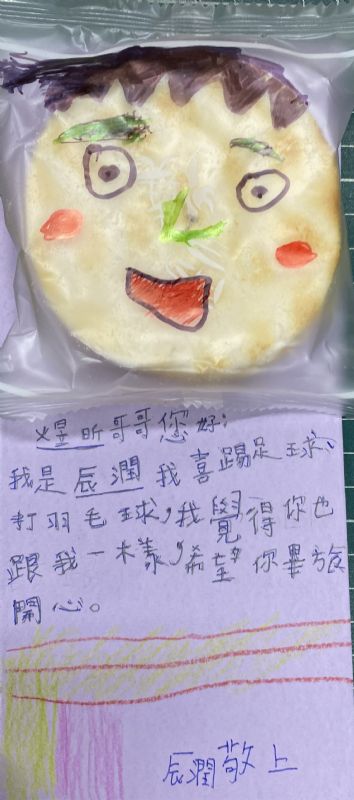 煋昕哥哥您好：
我是辰潤我喜踢足球、
打羽毛球，我覺得你也
跟我一樣，希望你畢旅
開心。
辰潤敬上